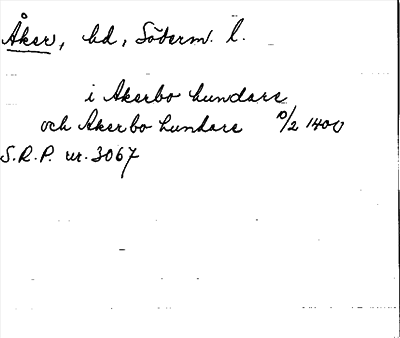 Åker, hd, Söderm. l.
i Akerbo hundare
och Akerbo hundare 10/2 1400
S.R.P. nr. 3067